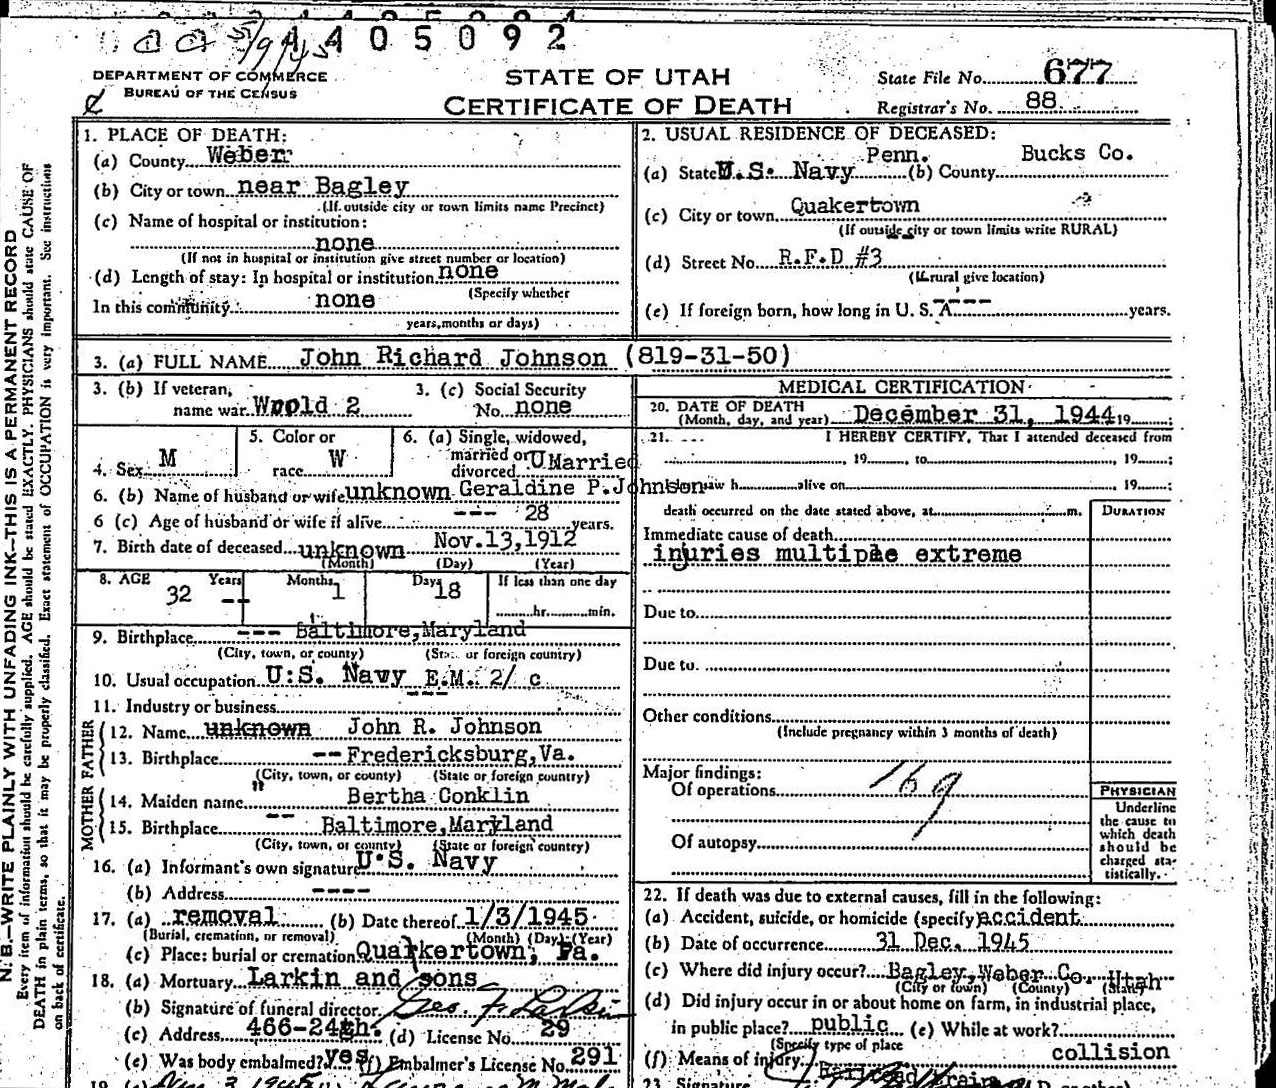 4405092
DEPARTMENT OF COMMERCE
BUREAU OF THE CENSUS
STATE OF UTAH
CERTIFICATE OF DEATH
State File No. 677
Registrar's No. 88
N. B.—WRITE PLAINLY WITH UNFADING INK—THIS IS A PERMANENT RECORD
Every item of information should be carefully supplied. AGE should be stated EXACTLY. PHYSICIANS should state CAUSE OF
DEATH in plain terms, so that it may be properly classified. Exact statement of OCCUPATION is very important. See instructions
on back of certificate.
1. PLACE OF DEATH:
(a) County Weber
(b) City or town near Bagley
(If outside city or town limits name Precinct)
(c) Name of hospital or institution:
none
(If not in hospital or institution give street number or location)
(d) Length of stay: In hospital or institution none
(Specify whether
In this community none
years, months or days)
2. USUAL RESIDENCE OF DECEASED:
Penn. Bucks Co.
(a) State U.S. Navy (b) County
(c) City or town Quakertown
(If outside city or town limits write RURAL)
(d) Street No. R.F.D #3
(If rural give location)
(e) If foreign born, how long in U. S. A. ---- years.
3. (a) FULL NAME John Richard Johnson (819-31-50)
3. (b) If veteran, name war Wrold 2
3. (c) Social Security No. none
4. Sex M
5. Color or race W
6. (a) Single, widowed, married or divorced U Married
6. (b) Name of husband or wife unknown Geraldine P. Johnson
6 (c) Age of husband or wife if alive --- 28 years.
7. Birth date of deceased unknown Nov.13,1912
(Month) (Day) (Year)
8. AGE Years Months Days If less than one day
32 -- 1 18 hr. min.
9. Birthplace --- Baltimore,Maryland
(City, town, or county) (State or foreign country)
10. Usual occupation U.S. Navy E.M. 2/ c
11. Industry or business ---
FATHER
12. Name unknown John R. Johnson
13. Birthplace -- Fredericksburg,Va.
(City, town, or county) (State or foreign country)
MOTHER
14. Maiden name " Bertha Conklin
15. Birthplace -- Baltimore,Maryland
(City, town, or county) (State or foreign country)
16. (a) Informant's own signature U.S. Navy
(b) Address ----
17. (a) removal (b) Date thereof 1/3/1945
(Burial, cremation, or removal) (Month) (Day) (Year)
(c) Place: burial or cremation Quarkertown, Pa.
18. (a) Mortuary Larkin and sons
(b) Signature of funeral director Geo F. Larkin
(c) Address 466-24th. (d) License No. 29
(e) Was body embalmed? yes (f) Embalmer's License No. 291
MEDICAL CERTIFICATION
20. DATE OF DEATH
(Month, day, and year) December 31, 1944 19 ;
21. I HEREBY CERTIFY, That I attended deceased from
, 19 , to , 19 ;
saw h alive on , 19 ;
death occurred on the date stated above, at m. DURATION
Immediate cause of death
injuries multiple extreme
Due to
Due to
Other conditions
(Include pregnancy within 3 months of death)
Major findings:
Of operations 169
Of autopsy
PHYSICIAN
Underline
the cause to
which death
should be
charged sta-
tistically.
22. If death was due to external causes, fill in the following:
(a) Accident, suicide, or homicide (specify) accident
(b) Date of occurrence 31 Dec. 1945
(c) Where did injury occur? Bagley,Weber Co. Utah
(City or town) (County) (State)
(d) Did injury occur in or about home on farm, in industrial place,
in public place? public (e) While at work?
(Specify type of place
(f) Means of injury collision
23. Signature